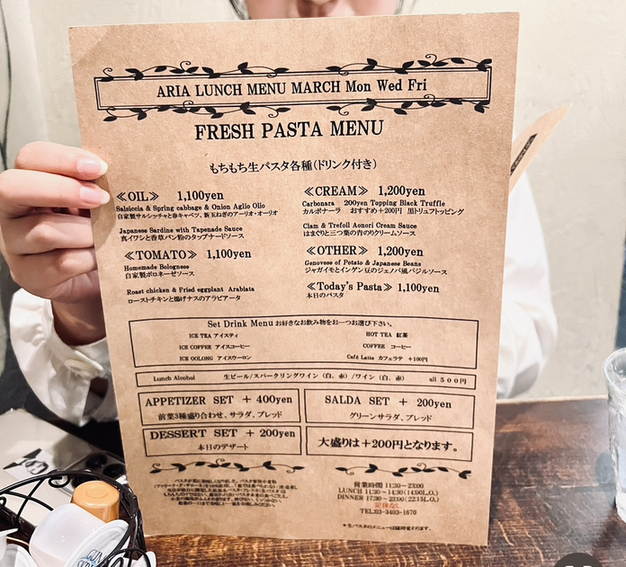 ARIA LUNCH MENU MARCH Mon Wed Fri
FRESH PASTA MENU
もちもち生パスタ各種(ドリンク付き)
≪OIL≫ 1,100yen
Salsiccia & Spring cabbage & Onion Aglio Olio
自家製サルシッチャと春キャベツ、新玉ねぎのアーリオ・オーリオ
Japanese Sardine with Tapenade Sauce
真イワシと香草パン粉のタップナードソース
≪TOMATO≫ 1,100yen
Homemade Bolognese
自家製ボロネーゼソース
Roast chicken & Fried eggplant Arabiata
ローストチキンと揚げナスのアラビアータ
≪CREAM≫ 1,200yen
Carbonara 200yen Topping Black Truffle
カルボナーラ おすすめ+200円 黒トリュフトッピング
Clam & Trefoil Aonori Cream Sauce
はまぐりと三つ葉の青のりクリームソース
≪OTHER≫ 1,200yen
Genovese of Potato & Japanese Beans
ジャガイモとインゲン豆のジェノバ風バジルソース
≪Today's Pasta≫ 1,100yen
本日のパスタ
Set Drink Menu お好きなお飲み物をお一つお選び下さい。
ICE TEA アイスティ
ICE COFFEE アイスコーヒー
ICE OOLONG アイスウーロン
HOT TEA 紅茶
COFFEE コーヒー
Café Latte カフェラテ +100円
Lunch Alcohol 生ビール/スパークリングワイン(白、赤)/ワイン(白、赤) all 500円
APPETIZER SET + 400yen
前菜3種盛り合わせ、サラダ、ブレッド
SALDA SET + 200yen
グリーンサラダ、ブレッド
DESSERT SET + 200yen
本日のデザート
大盛りは+200円となります。
営業時間 11:30~23:00
LUNCH 11:30~14:30(14:00L.O.)
DINNER 17:30~23:00(22:15L.O.)
定休なし
TEL:03-3403-1670
*生パスタのメニューは随時変わります。